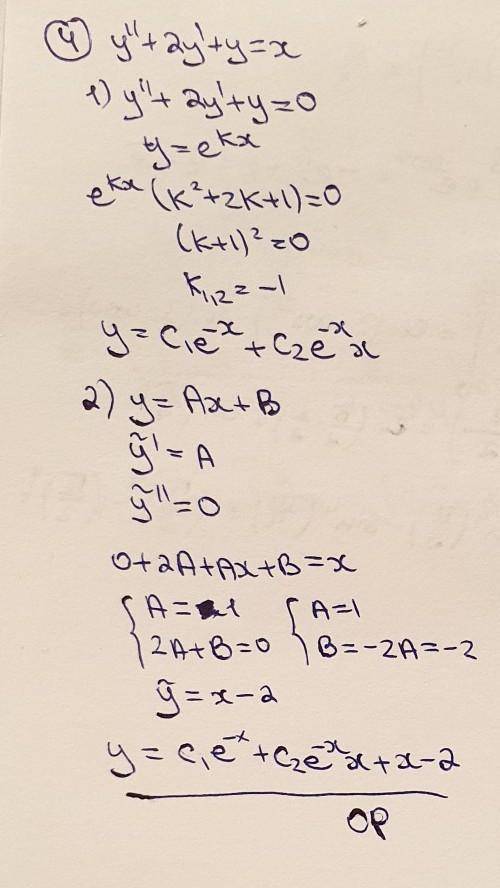 ④ y'' + 2y' + y = x
1) y'' + 2y' + y = 0
y = e^{kx}
e^{kx} (k² + 2k + 1) = 0
(k+1)² = 0
k_{1,2} = -1
y = C₁e^{-x} + C₂e^{-x}x
2) y = Ax + B
ỹ' = A
ỹ'' = 0
0 + 2A + Ax + B = x
{ A = 1 { A = 1
{ 2A + B = 0 { B = -2A = -2
ỹ = x - 2
y = C₁e^{-x} + C₂e^{-x}x + x - 2
OP